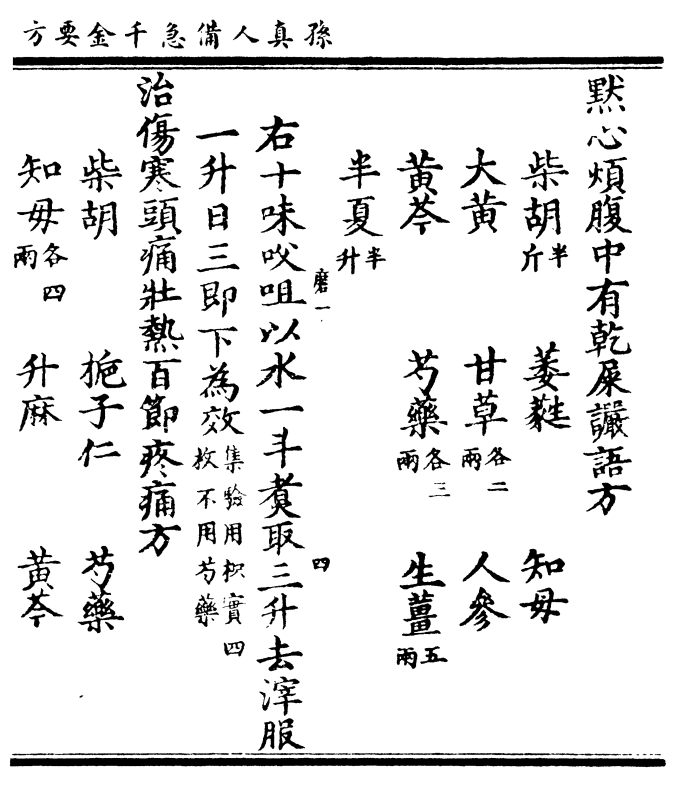 孫真人備急千金要方
默心煩腹中有乾屎讝語方
柴胡半斤 萎蕤 知母
大黃 甘草各二兩 人參
黃芩 芍藥各三兩 生薑五兩
半夏半升
右十味㕮咀以水一斗煑取三升去滓服
磨一 四
一升日三即下為效集驗用枳實四枚不用芍藥
治傷寒頭痛壯熱百節疼痛方
柴胡 梔子仁 芍藥
知母各四兩 升麻 黃芩